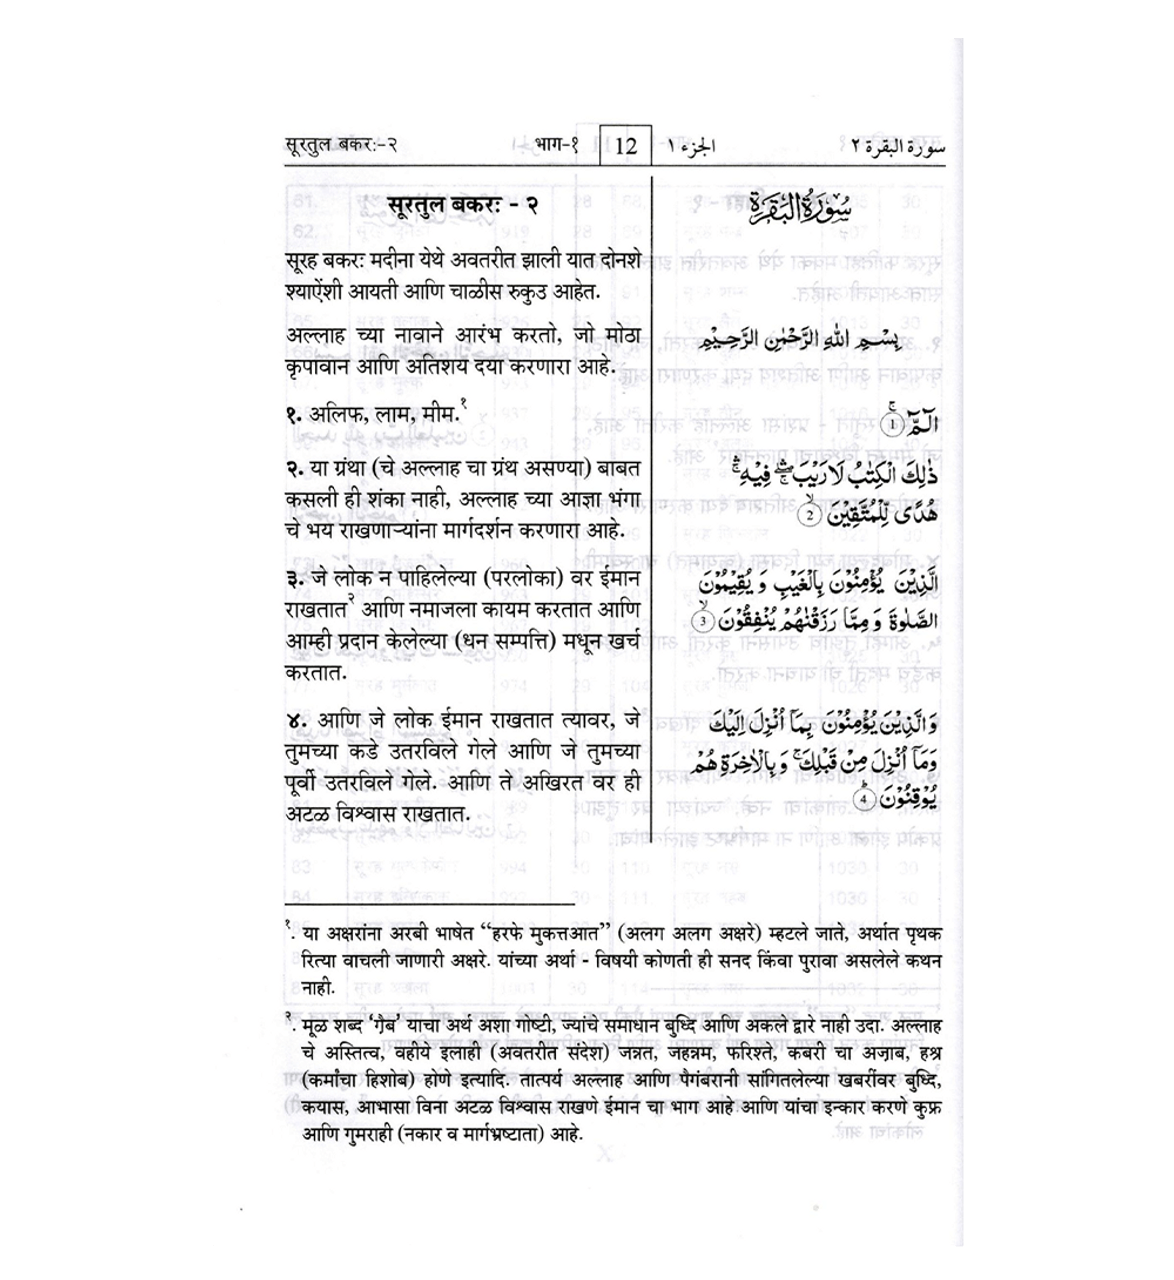 सूरतुल बकरः-२ भाग-१ 12 الجزء ١ سورة البقرة ٢
सूरतुल बकरः - २
सूरह बकरः मदीना येथे अवतरीत झाली यात दोनशे
श्याऐंशी आयती आणि चाळीस रुकुउ आहेत.
अल्लाह च्या नावाने आरंभ करतो, जो मोठा
कृपावान आणि अतिशय दया करणारा आहे.
१. अलिफ, लाम, मीम.¹
२. या ग्रंथा (चे अल्लाह चा ग्रंथ असण्या) बाबत
कसली ही शंका नाही, अल्लाह च्या आज्ञा भंगा
चे भय राखणाऱ्यांना मार्गदर्शन करणारा आहे.
३. जे लोक न पाहिलेल्या (परलोका) वर ईमान
राखतात² आणि नमाजला कायम करतात आणि
आम्ही प्रदान केलेल्या (धन सम्पत्ति) मधून खर्च
करतात.
४. आणि जे लोक ईमान राखतात त्यावर, जे
तुमच्या कडे उतरविले गेले आणि जे तुमच्या
पूर्वी उतरविले गेले. आणि ते अखिरत वर ही
अटळ विश्वास राखतात.
سُوْرَةُ الْبَقَرَةِ
بِسْمِ اللّٰهِ الرَّحْمٰنِ الرَّحِيْمِ
الٓمّٓ ۚ ①
ذٰلِكَ الْكِتٰبُ لَا رَيْبَ ۛۚ فِيْهِ ۛۚ
هُدًى لِّلْمُتَّقِيْنَ ۙ ②
الَّذِيْنَ يُؤْمِنُوْنَ بِالْغَيْبِ وَ يُقِيْمُوْنَ
الصَّلٰوةَ وَ مِمَّا رَزَقْنٰهُمْ يُنْفِقُوْنَ ۙ ③
وَ الَّذِيْنَ يُؤْمِنُوْنَ بِمَآ اُنْزِلَ اِلَيْكَ
وَمَآ اُنْزِلَ مِنْ قَبْلِكَ ۚ وَ بِالْاٰخِرَةِ هُمْ
يُوْقِنُوْنَ ؕ ④
१. या अक्षरांना अरबी भाषेत “हरफे मुकत्तआत” (अलग अलग अक्षरे) म्हटले जाते, अर्थात पृथक
रित्या वाचली जाणारी अक्षरे. यांच्या अर्था - विषयी कोणती ही सनद किंवा पुरावा असलेले कथन
नाही.
२. मूळ शब्द ‘ग़ैब’ याचा अर्थ अशा गोष्टी, ज्यांचे समाधान बुध्दि आणि अकले द्वारे नाही उदा. अल्लाह
चे अस्तित्व, वहीये इलाही (अवतरीत संदेश) जन्नत, जहन्नम, फरिश्ते, कबरी चा अज़ाब, हश्र
(कर्माचा हिशोब) होणे इत्यादि. तात्पर्य अल्लाह आणि पैगंबरानी सांगितलेल्या खबरींवर बुध्दि,
कयास, आभासा विना अटळ विश्वास राखणे ईमान चा भाग आहे आणि यांचा इन्कार करणे कुफ्र
आणि गुमराही (नकार व मार्गभ्रष्टाता) आहे.